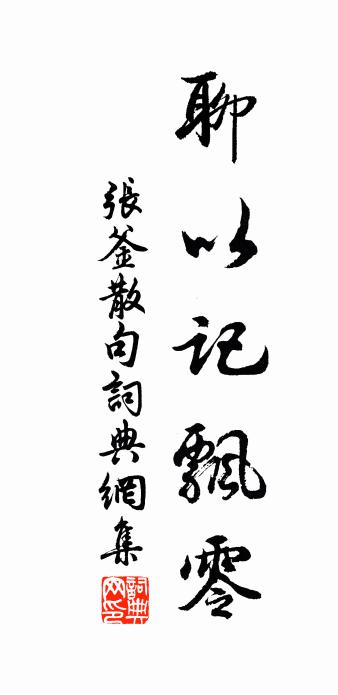 聊以記飄零
張釜散句詞典網集
詞典
网印